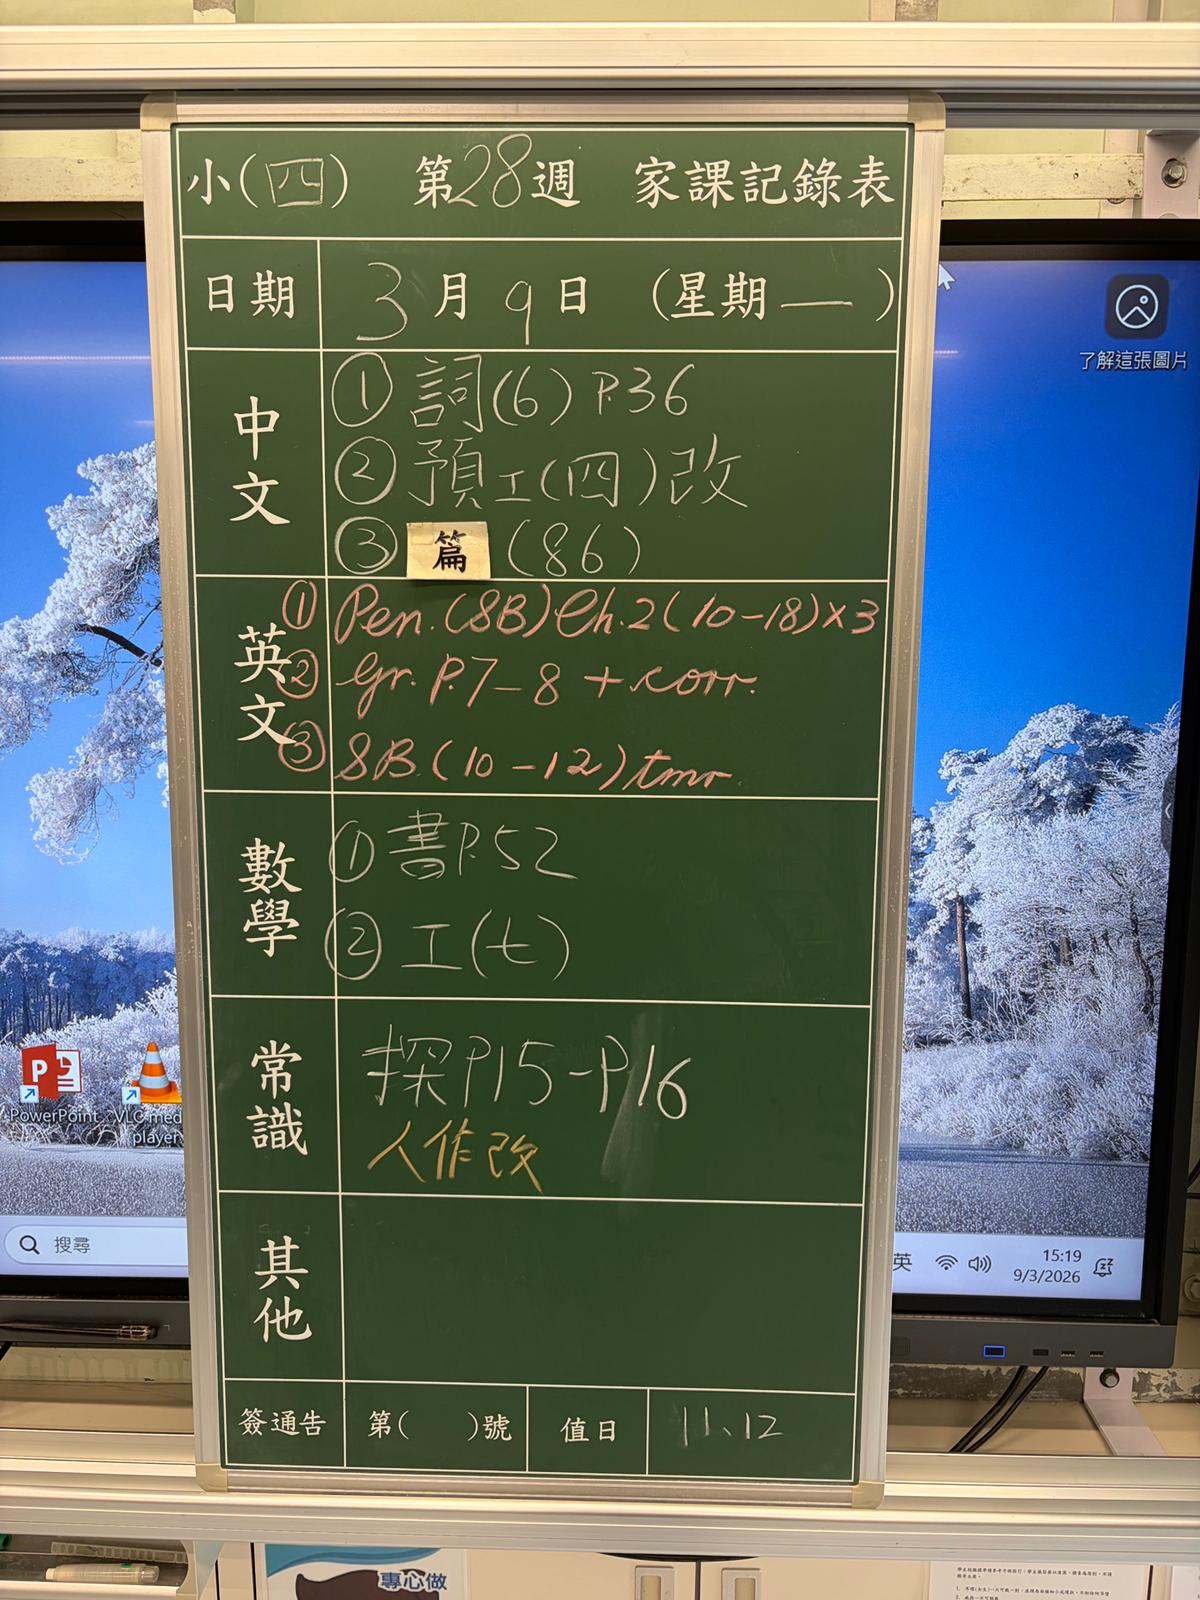 小(四) 第28週 家課記錄表
日期 3月9日 (星期一)
中文
① 詞(6) P.36
② 預工(四)改
③ 篇 (86)
英文
① Pen.(8B) Ch.2(10-18)×3
② Gr. P.7-8 + corr.
③ 8B (10-12) tmr
數學
① 書P.52
② 工(七)
常識
探P15-P16
人作改
其他
簽通告 第( )號 值日 11、12
了解這張圖片
PowerPoint
VLC med
player
搜尋
英
15:19
9/3/2026
專心做